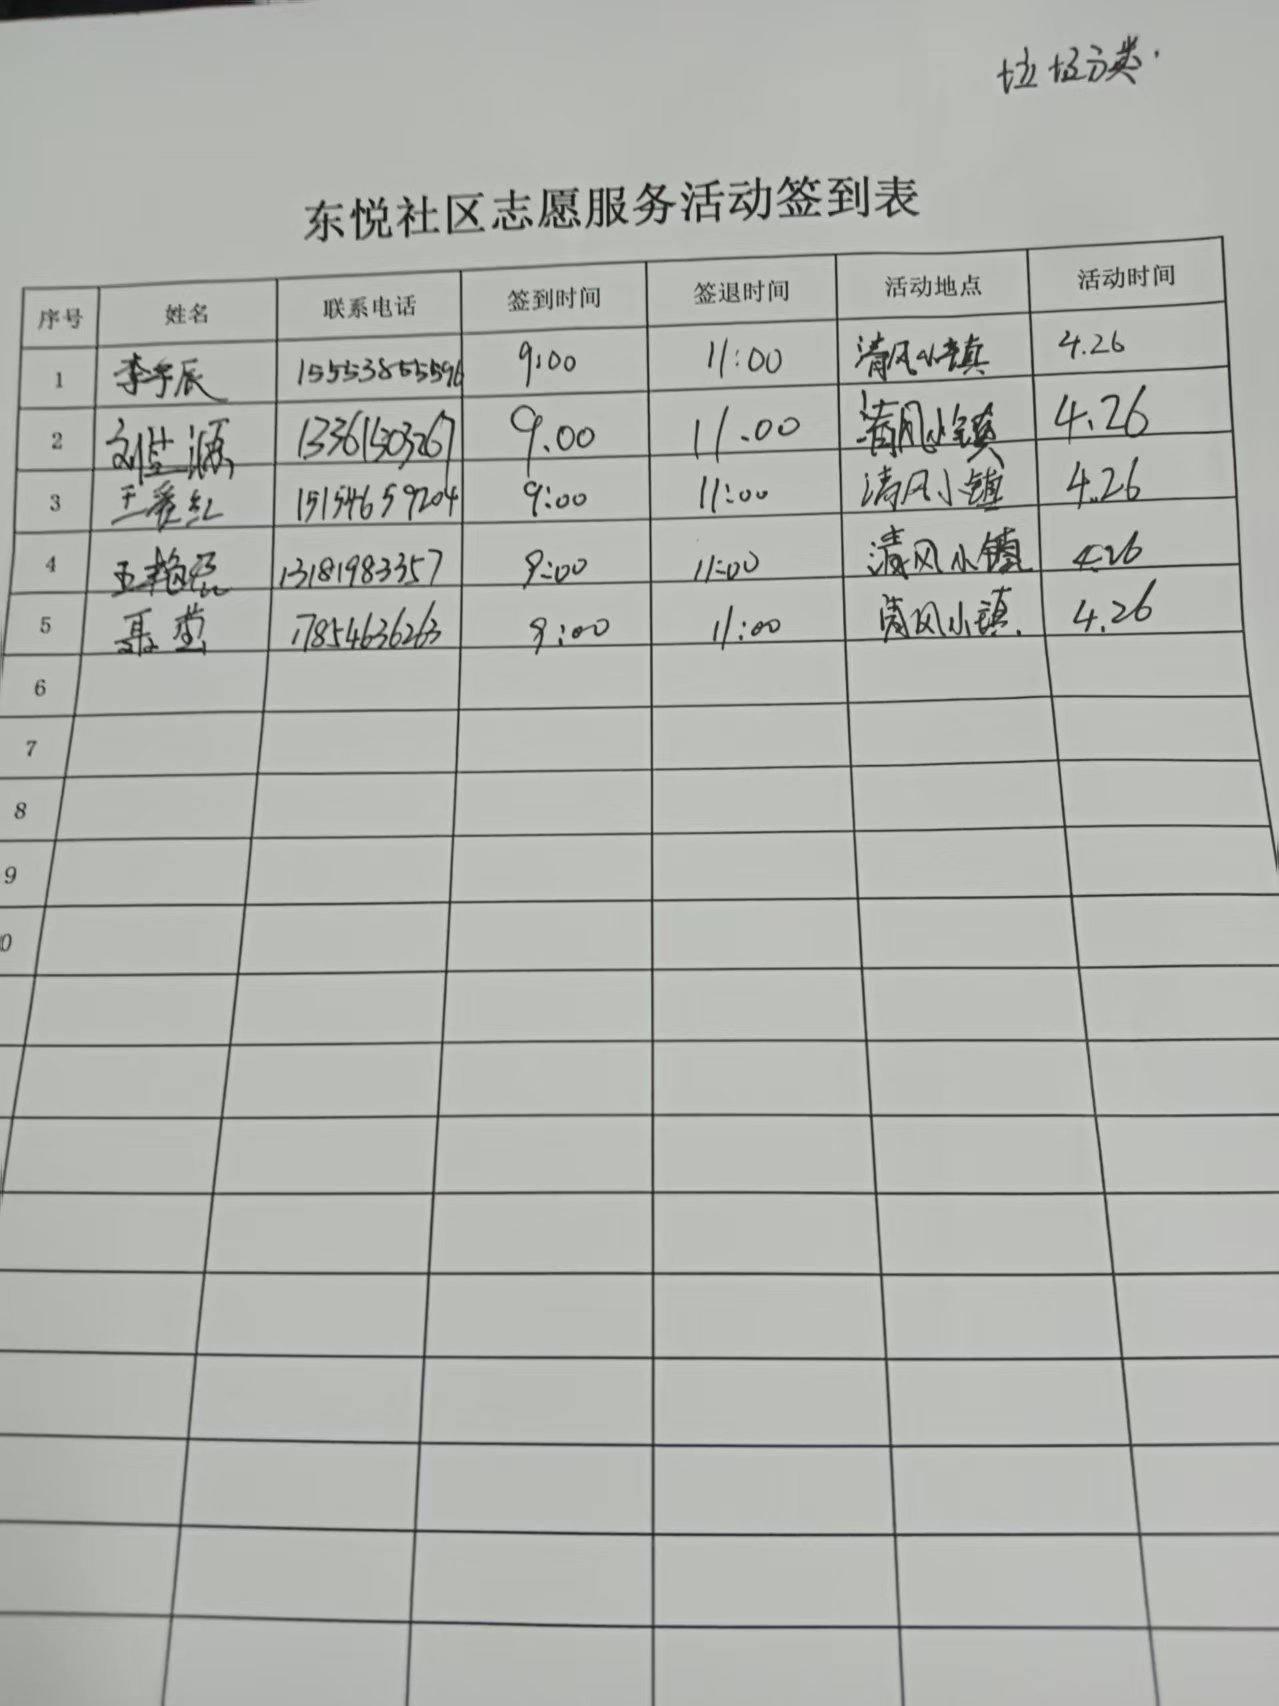 垃圾分类.
东悦社区志愿服务活动签到表
序号 姓名 联系电话 签到时间 签退时间 活动地点 活动时间
1 李宇辰 15553855596 9:00 11:00 清风小镇 4.26
2 13361503267 9.00 11.00 清风小镇 4.26
3 王爱红 15154659204 9:00 11:00 清风小镇 4.26
4 王艳磊 13181983357 9:00 11:00 清风小镇 4.26
5 聂莹 17854636263 9:00 11:00 清风小镇 4.26
6
7
8
9
0